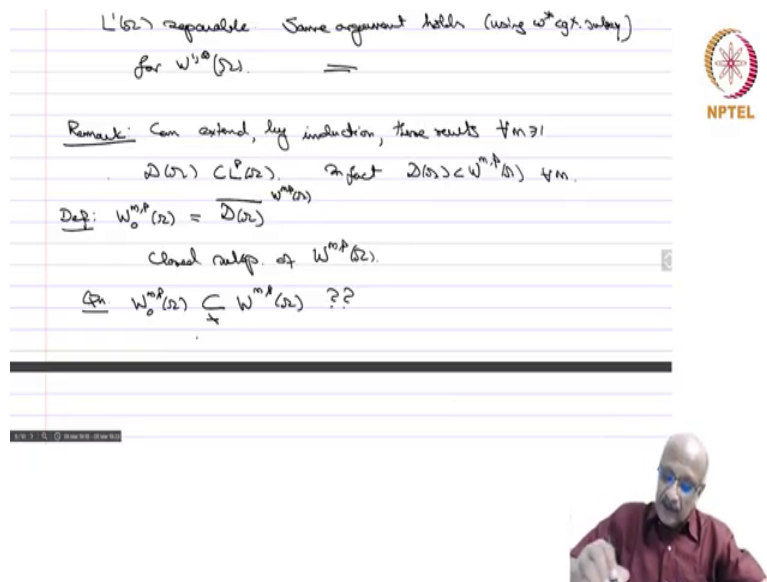 L¹(Ω) separable. Same argument holds (using w* cgt. subseq)
for W^{1,∞}(Ω).
Remark: Can extend, by induction, these results ∀m≥1
D(Ω) ⊂ L^p(Ω). In fact D(Ω) ⊂ W^{m,p}(Ω) ∀m.
Def: W₀^{m,p}(Ω) = \overline{D(Ω)}^{W^{m,p}(Ω)}
Closed subsp. of W^{m,p}(Ω).
Qn. W₀^{m,p}(Ω) ⊊ W^{m,p}(Ω) ??
NPTEL